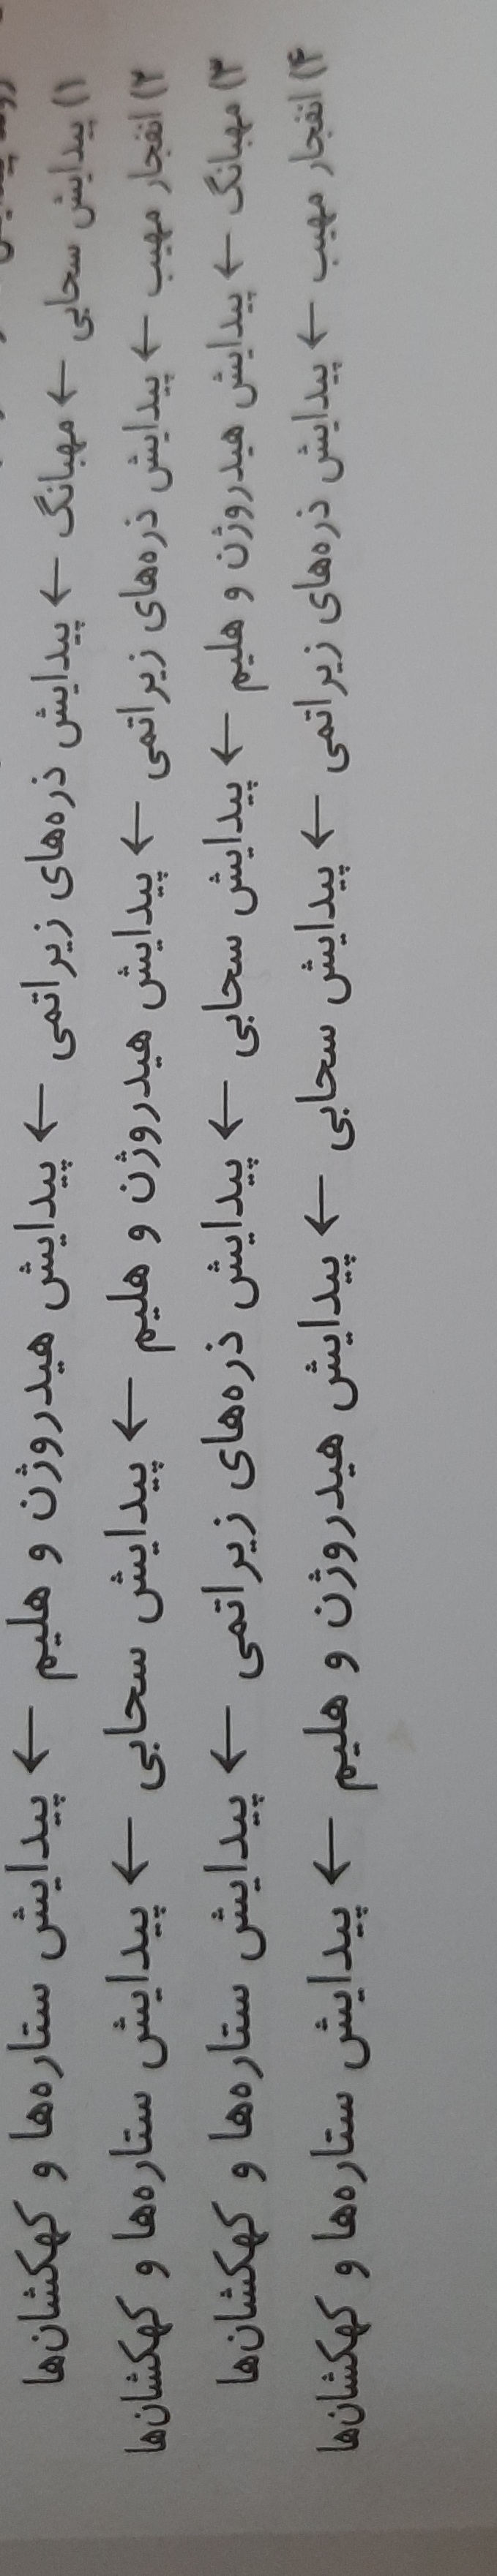 ۱) پیدایش سحابی ← مهبانگ ← پیدایش ذره‌های زیراتمی ← پیدایش هیدروژن و هلیم ← پیدایش ستاره‌ها و کهکشان‌ها
۲) انفجار مهیب ← پیدایش ذره‌های زیراتمی ← پیدایش هیدروژن و هلیم ← پیدایش سحابی ← پیدایش ستاره‌ها و کهکشان‌ها
۳) مهبانگ ← پیدایش هیدروژن و هلیم ← پیدایش سحابی ← پیدایش ذره‌های زیراتمی ← پیدایش ستاره‌ها و کهکشان‌ها
۴) انفجار مهیب ← پیدایش ذره‌های زیراتمی ← پیدایش سحابی ← پیدایش هیدروژن و هلیم ← پیدایش ستاره‌ها و کهکشان‌ها